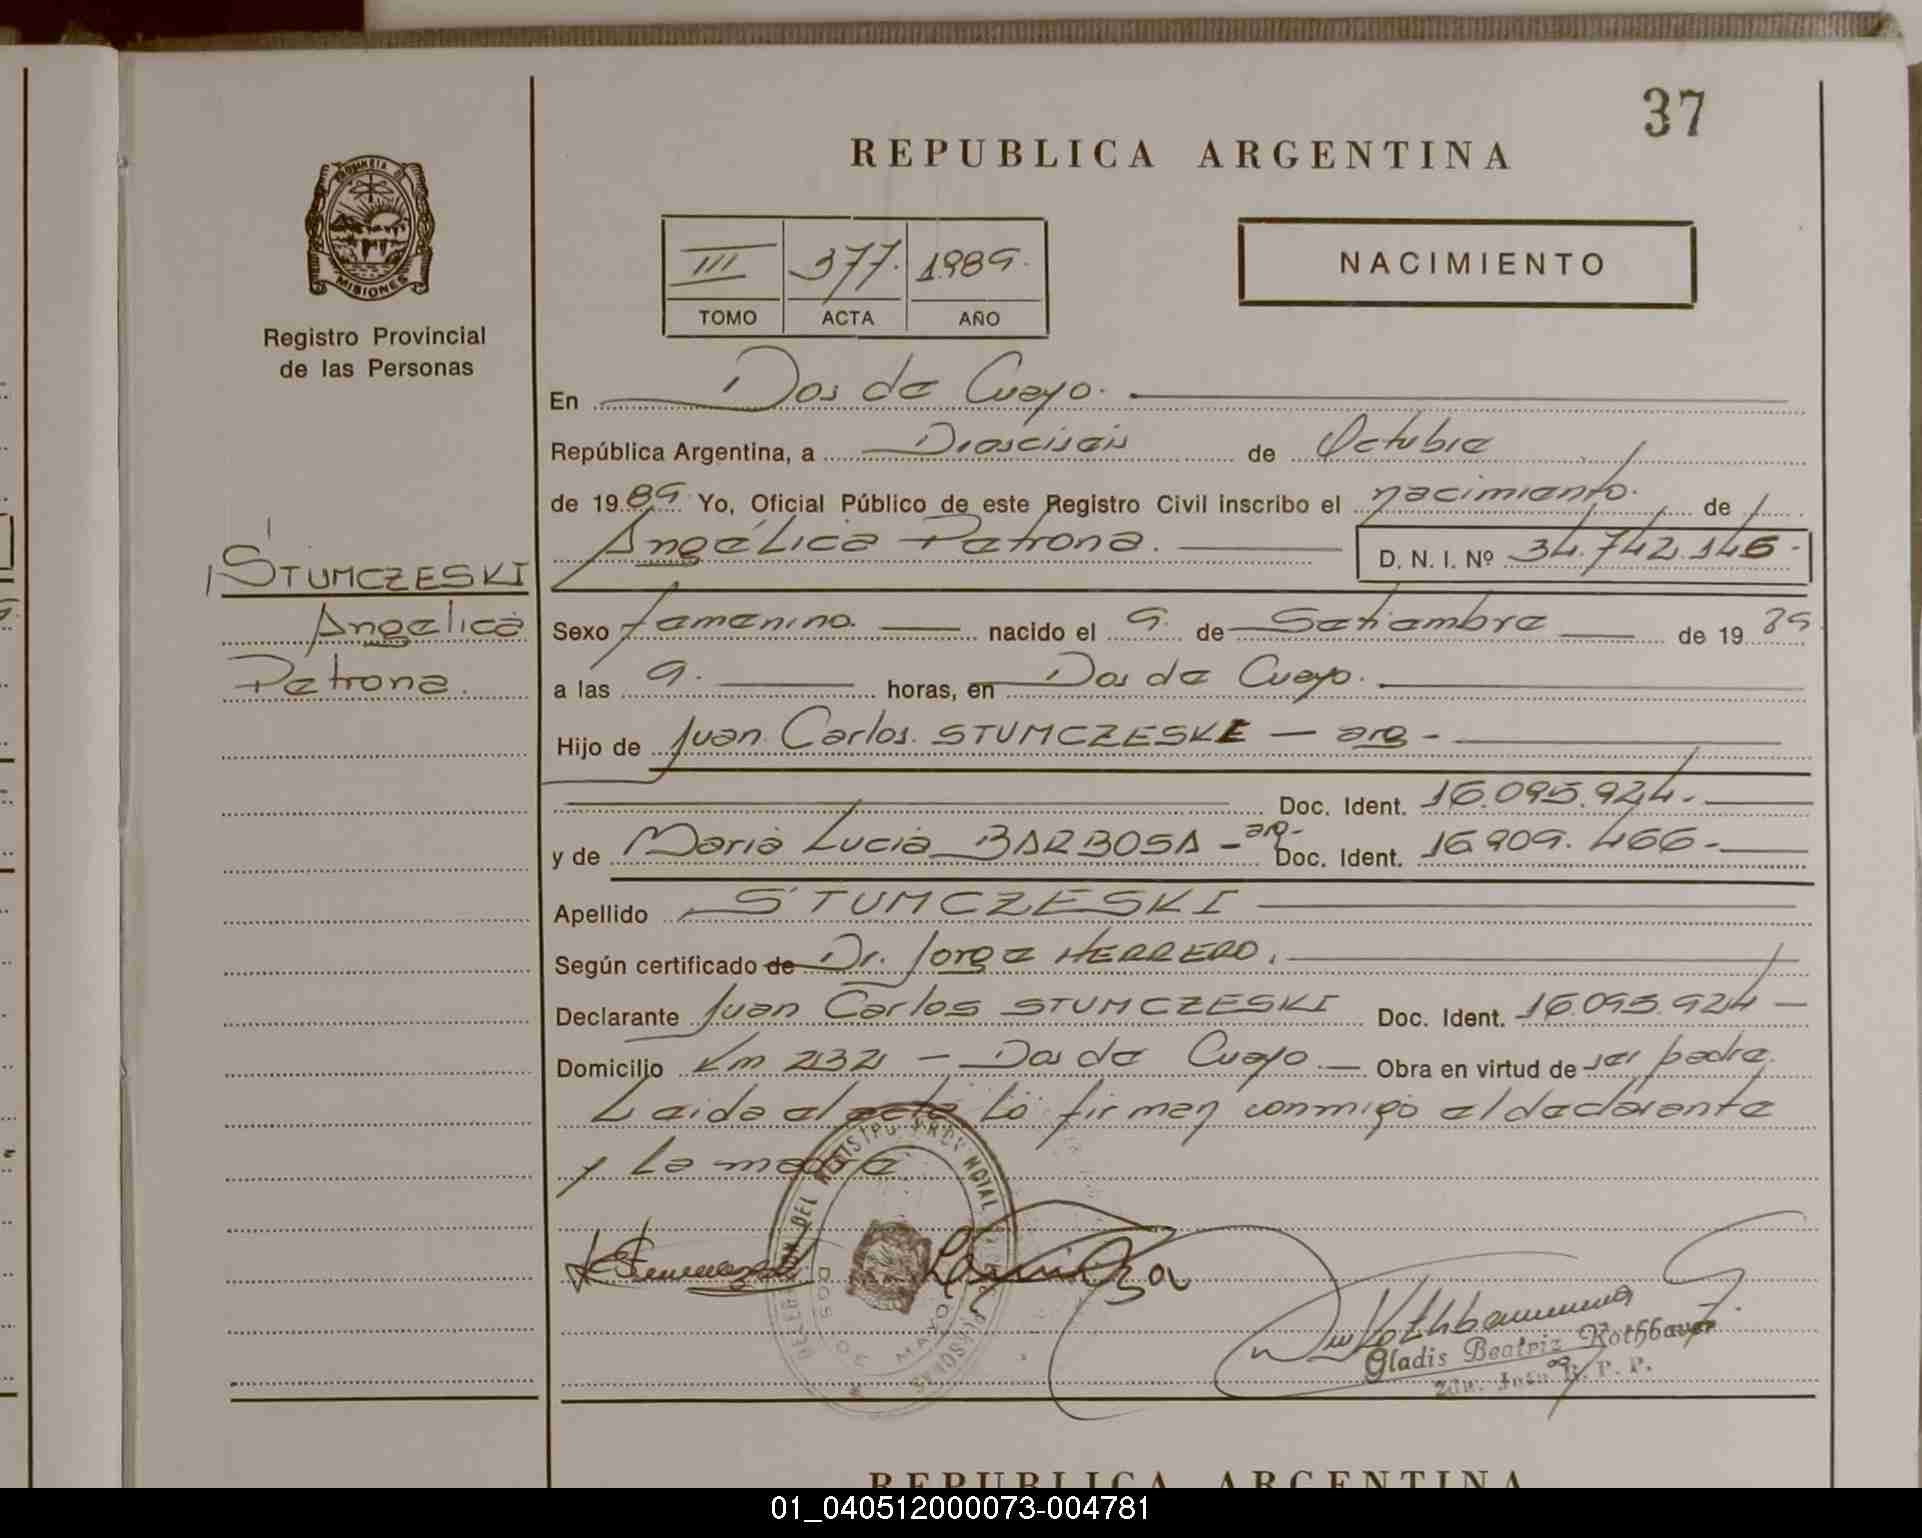 37
REPUBLICA ARGENTINA
PROVINCIA D MISIONES
Registro Provincial
de las Personas
III 377. 1989.
TOMO ACTA AÑO
NACIMIENTO
En Dos de Cuayo.
República Argentina, a Dieciseis de Octubre
de 1989 Yo, Oficial Público de este Registro Civil inscribo el nacimiento. de
Angélica Petrona. D. N. I. Nº 34.742.146-
STUMCZESKI
Angelica
Petrona.
Sexo femenino. nacido el 9. de Setiembre de 1989
a las 9. horas, en Dos de Cuayo.
Hijo de Juan Carlos. STUMCZESKE - arg -
Doc. Ident. 16.095.924.-
y de Maria Lucia BARBOSA - arg- Doc. Ident. 16.909.466-
Apellido STUMCZESKI
Según certificado de Dr. Jorge HERRERO.
Declarante Juan Carlos STUMCZESKI Doc. Ident. 16.095.924-
Domicilio Km 232 - Dos de Cuayo. Obra en virtud de ser padre.
Leida el acta Lo firman conmigo el declarante
y La madre
DELEGACION DEL REGISTRO PROVINCIAL PERSONAS
DOS DE MAYO
Gladis Beatriz Rothbauer
R. P. P.
REPUBLICA ARGENTINA
01_040512000073-004781